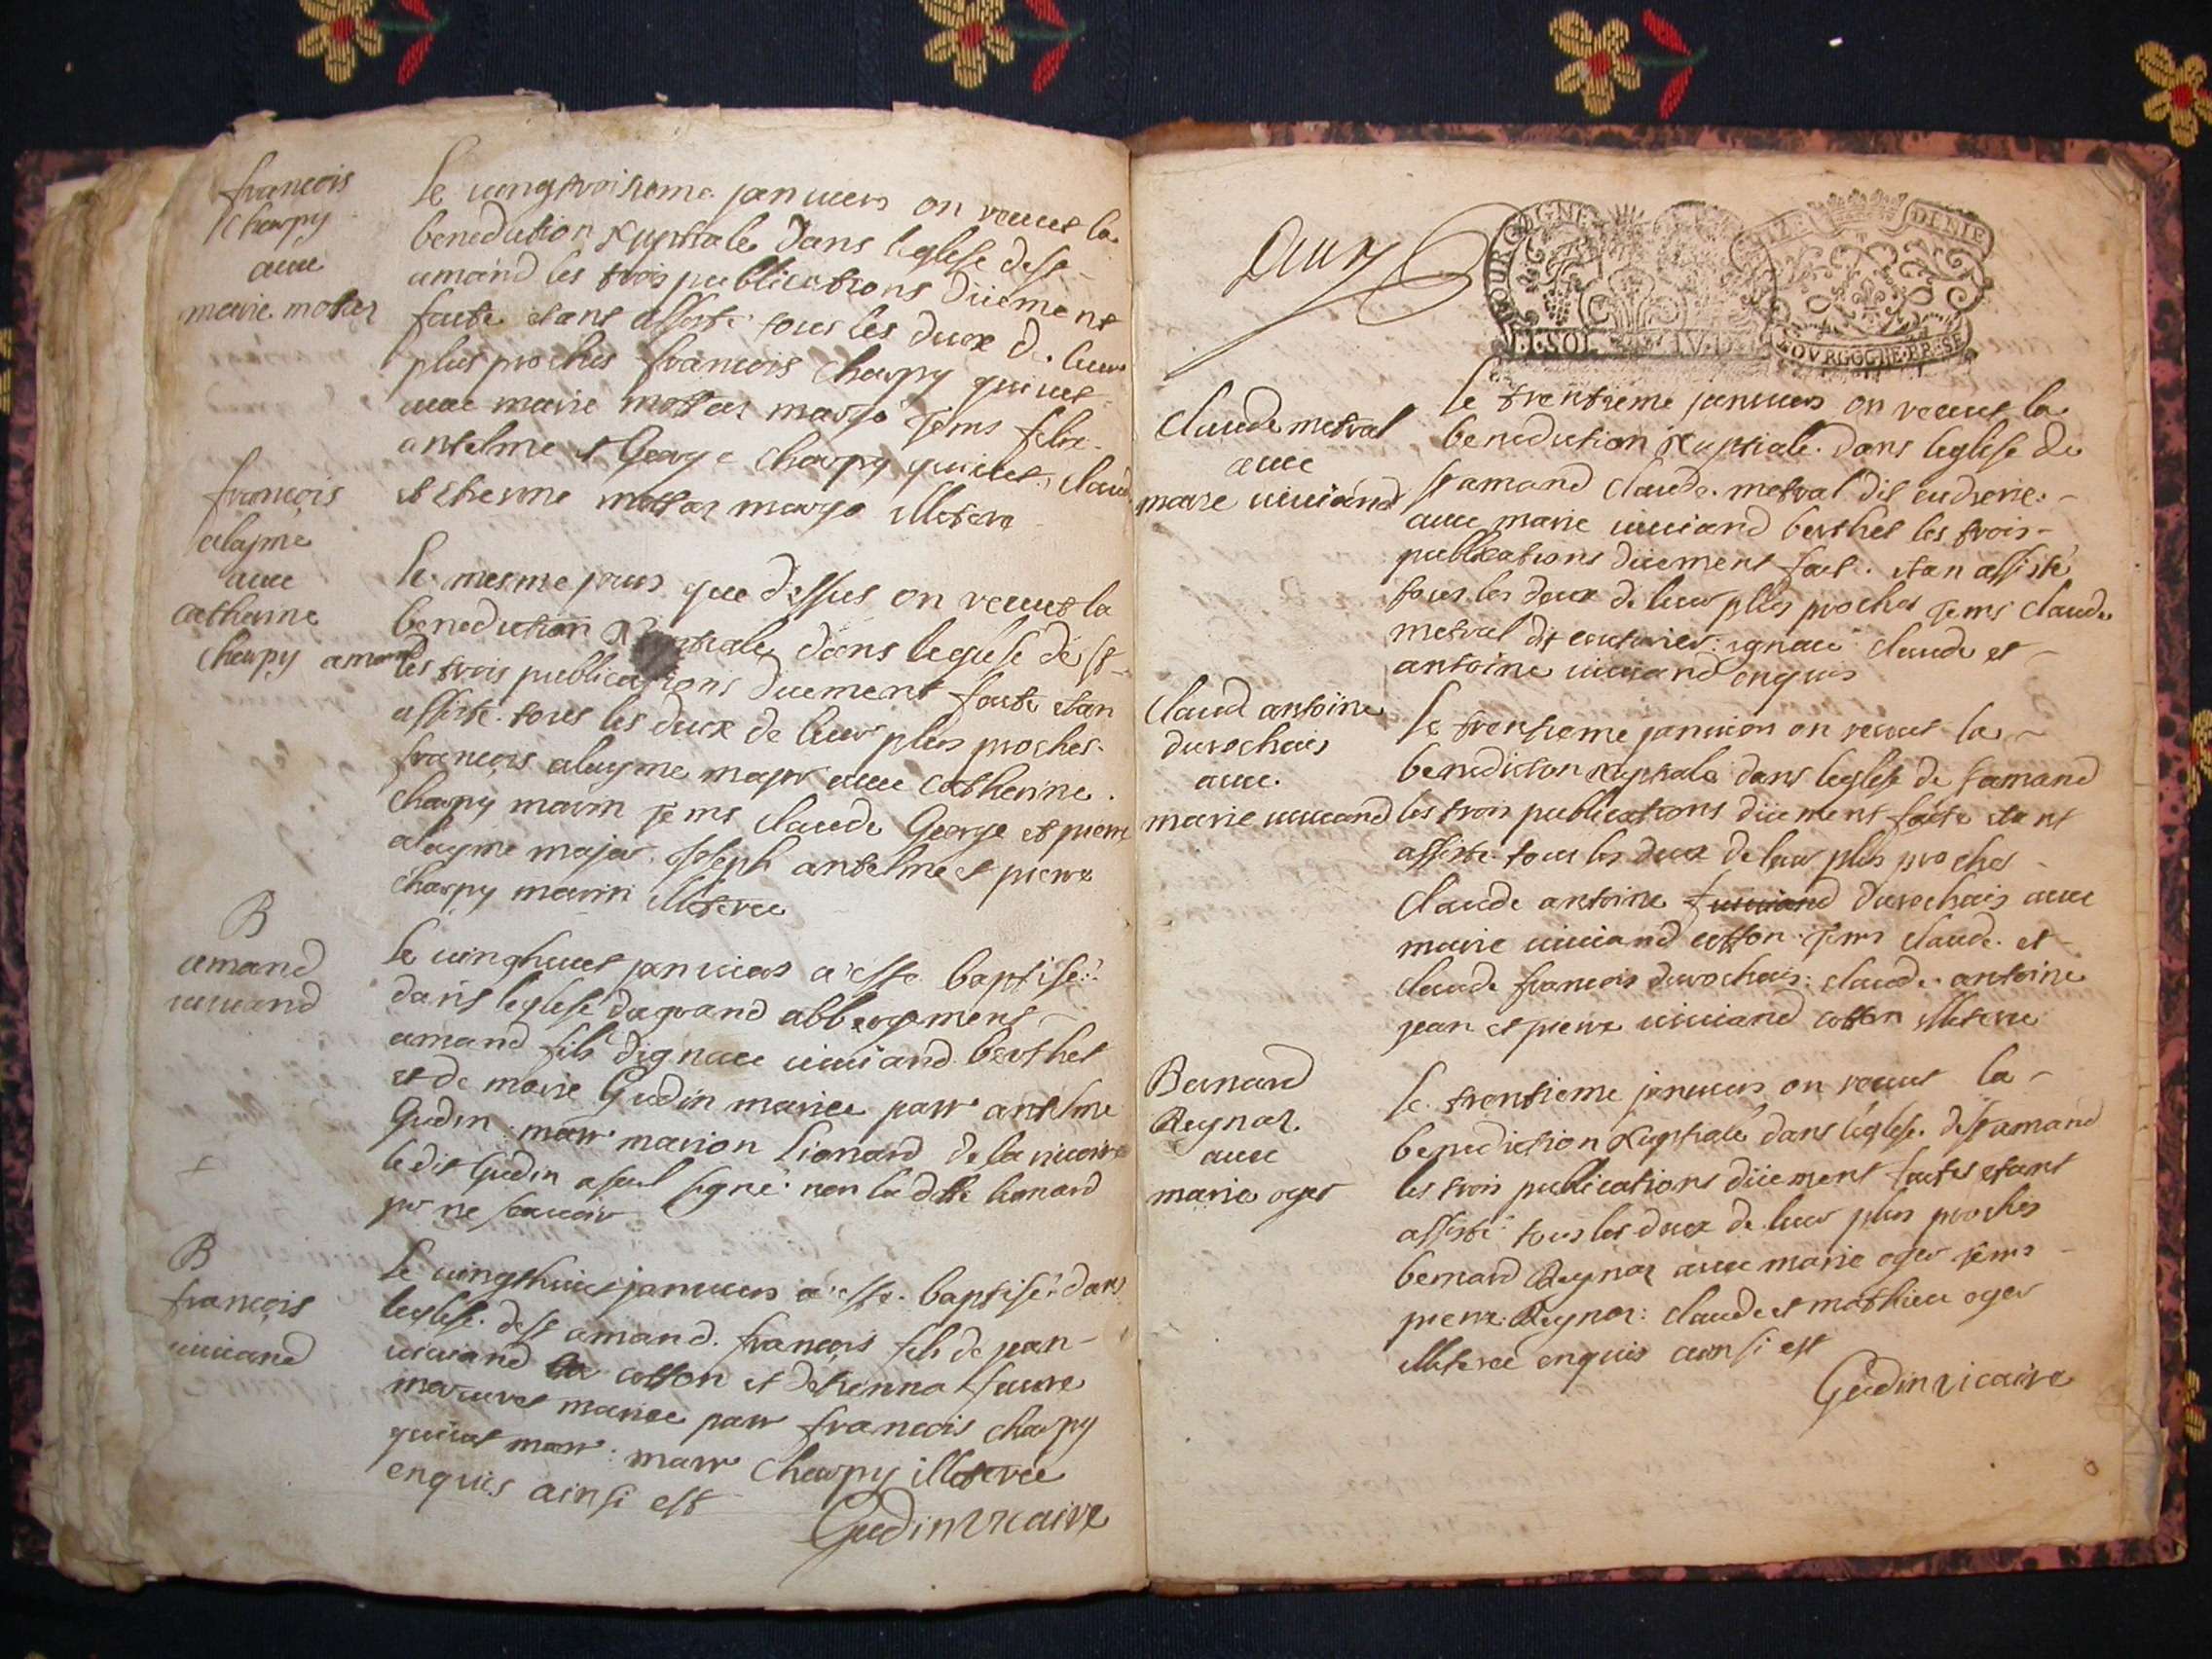 françois
Charpy
avec
marie mottaz
Le vingtroisieme janviers on reçuet la
benediction Nuptiale dans leglese de st
amand les trois publications düement
faite etant assisté tous les deux de leur
plus proches françois Charpy
avec marie mottaz margo
antelme et George Charpy Claud
et Etienne mottaz margo illeteré
françois
alayme
avec
catherine
Charpy
Le mesme jours que dessus on reçuet la
benediction Nuptiale dans leglese de st
amand les trois publications duement faite etan
assisté tous les deux de leur plus proches
françois alayme major avec Catherine
Charpy marin tems Claude George et pierre
alayme major Joseph antelme et pierre
Charpy marin illeteree
B
amand
viviand
Le vinghuit janviers a esté baptisé
dans leglese du grand abbergement
amand fils dignace viviand berthet
et de marie Gudin mariee parr antelme
Gudin marr marion Lionard de la riviere
le dit Gudin a seul signé non la ditte lionard
pr ne scavoir
B
françois
viviand
Le vingthuit janviers a esté baptisé dans
leglese de st amand françois fils de jean
viviand cotton et detienna favre
mariee parr françois Charpy
marr marr Charpy illeteree
enquis ainsi est
Gudin vicaire
BOURGOGNE
DENIE
SOL
Claude metral
avec
marie viviand
Le trentieme janviers on reçuet la
benediction Nuptiale dans leglese de
st amand Claude metral dit
avec marie viviand berthet les trois
publications düement fait etan assisté
tous les deux de leur plus proches tems Claude
metral dit ignace Claude et
antoine viviand enquis
Claud antoine
durochais
avec
marie viviand
Le trentieme janviers on reçuet la
benediction nuptiale dans leglese de st amand
les trois publications düement faite etant
assisté tous les deux de leur plus proches
Claude antoine durochais avec
marie viviand cotton tems Claude et
Claude françois durochais Claude antoine
jean et pierre viviand cotton illeteree
Bernard
Reynaz
avec
marie oger
Le trentieme janviers on reçuet la
benediction Nuptiale dans léglese de st amand
les trois publications düement faites etant
assisté tous les deux de leur plus proches
bernard Reynaz avec marie oger tems
pierre Reynaz Claude et mathieu oger
illeteree enquis ainsi est
Gudin vicaire